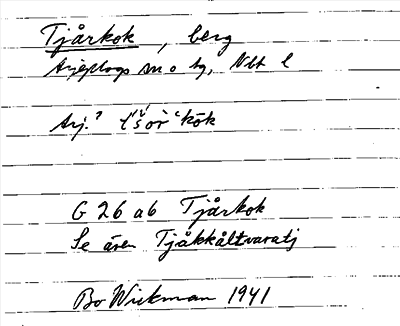 Tjårkok, berg
Arjeplogs sn o tg, Nbt l
Arj.? t́'š́òr‘kōk
G 26 a b Tjårkok
Se även Tjåkkåltvaratj
Bo Wickman 1941